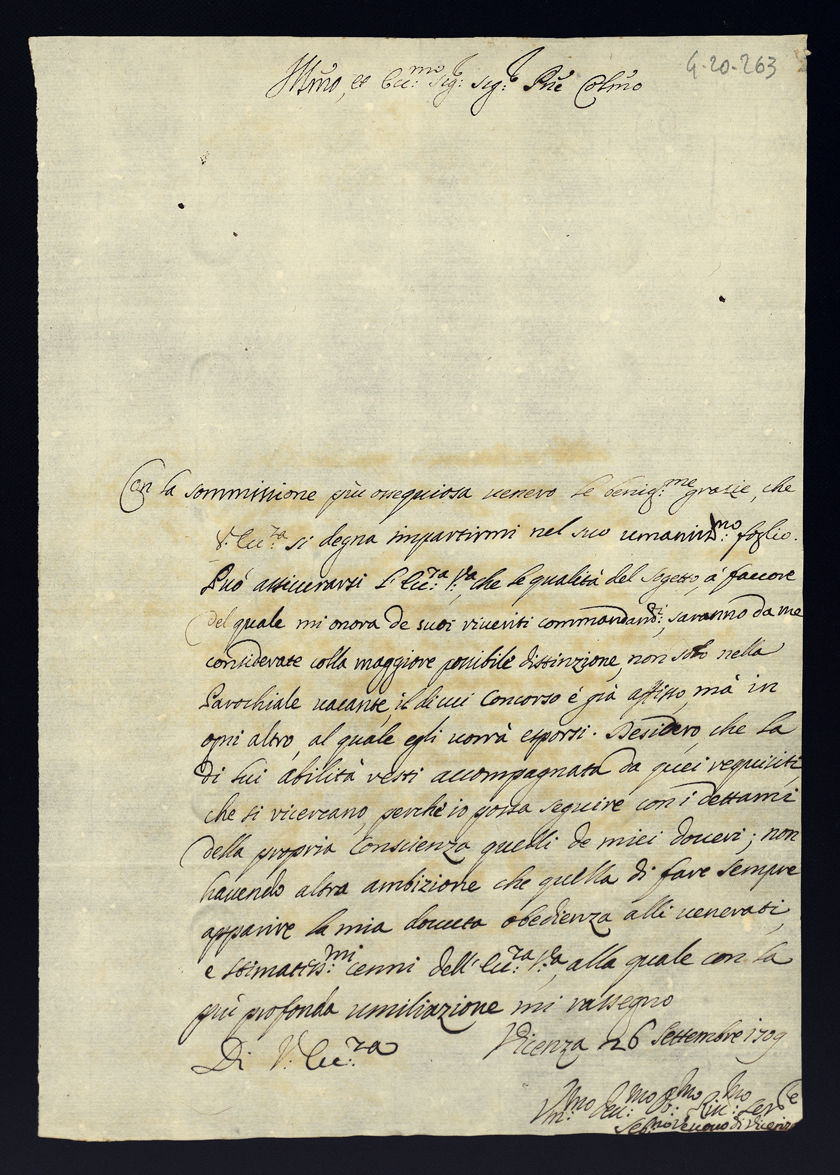 4-20-263
Illmo, et Ecc:mo Sig: Sig:r Pne Colmo
Con la sommissione più ossequiosa venero le benig:me grazie, che
V: Ecc:za si degna impartirmi nel suo umaniss:mo foglio.
Può assicurarsi l'Ecc:za V:a, che le qualità del sogetto, à favore
del quale mi onora de suoi riveriti commandam:ti, saranno da me
considerate colla maggiore possibile distinzione, non solo nella
Parochiale vacante, il di cui Concorso è già affisso, mà in
ogni altro, al quale egli vorrà esporsi. Desidero, che la
di lui abilità resti accompagnata da quei requisiti
che si ricercano, perche io possa seguire con i dettami
della propria Conscienza quelli de miei doveri; non
havendo altra ambizione che quella di fare sempre
apparire la mia dovuta obedienza alli venerati,
e stimatiss:mi cenni dell'Ecc:za V:a, alla quale con la
più profonda umiliazione mi rassegno
Di V: Ecc:za
Vicenza 26 Settembre 1709
Um:mo Dev:mo Obb:mo Ser:e
Seb:no Vescovo di Vicenza